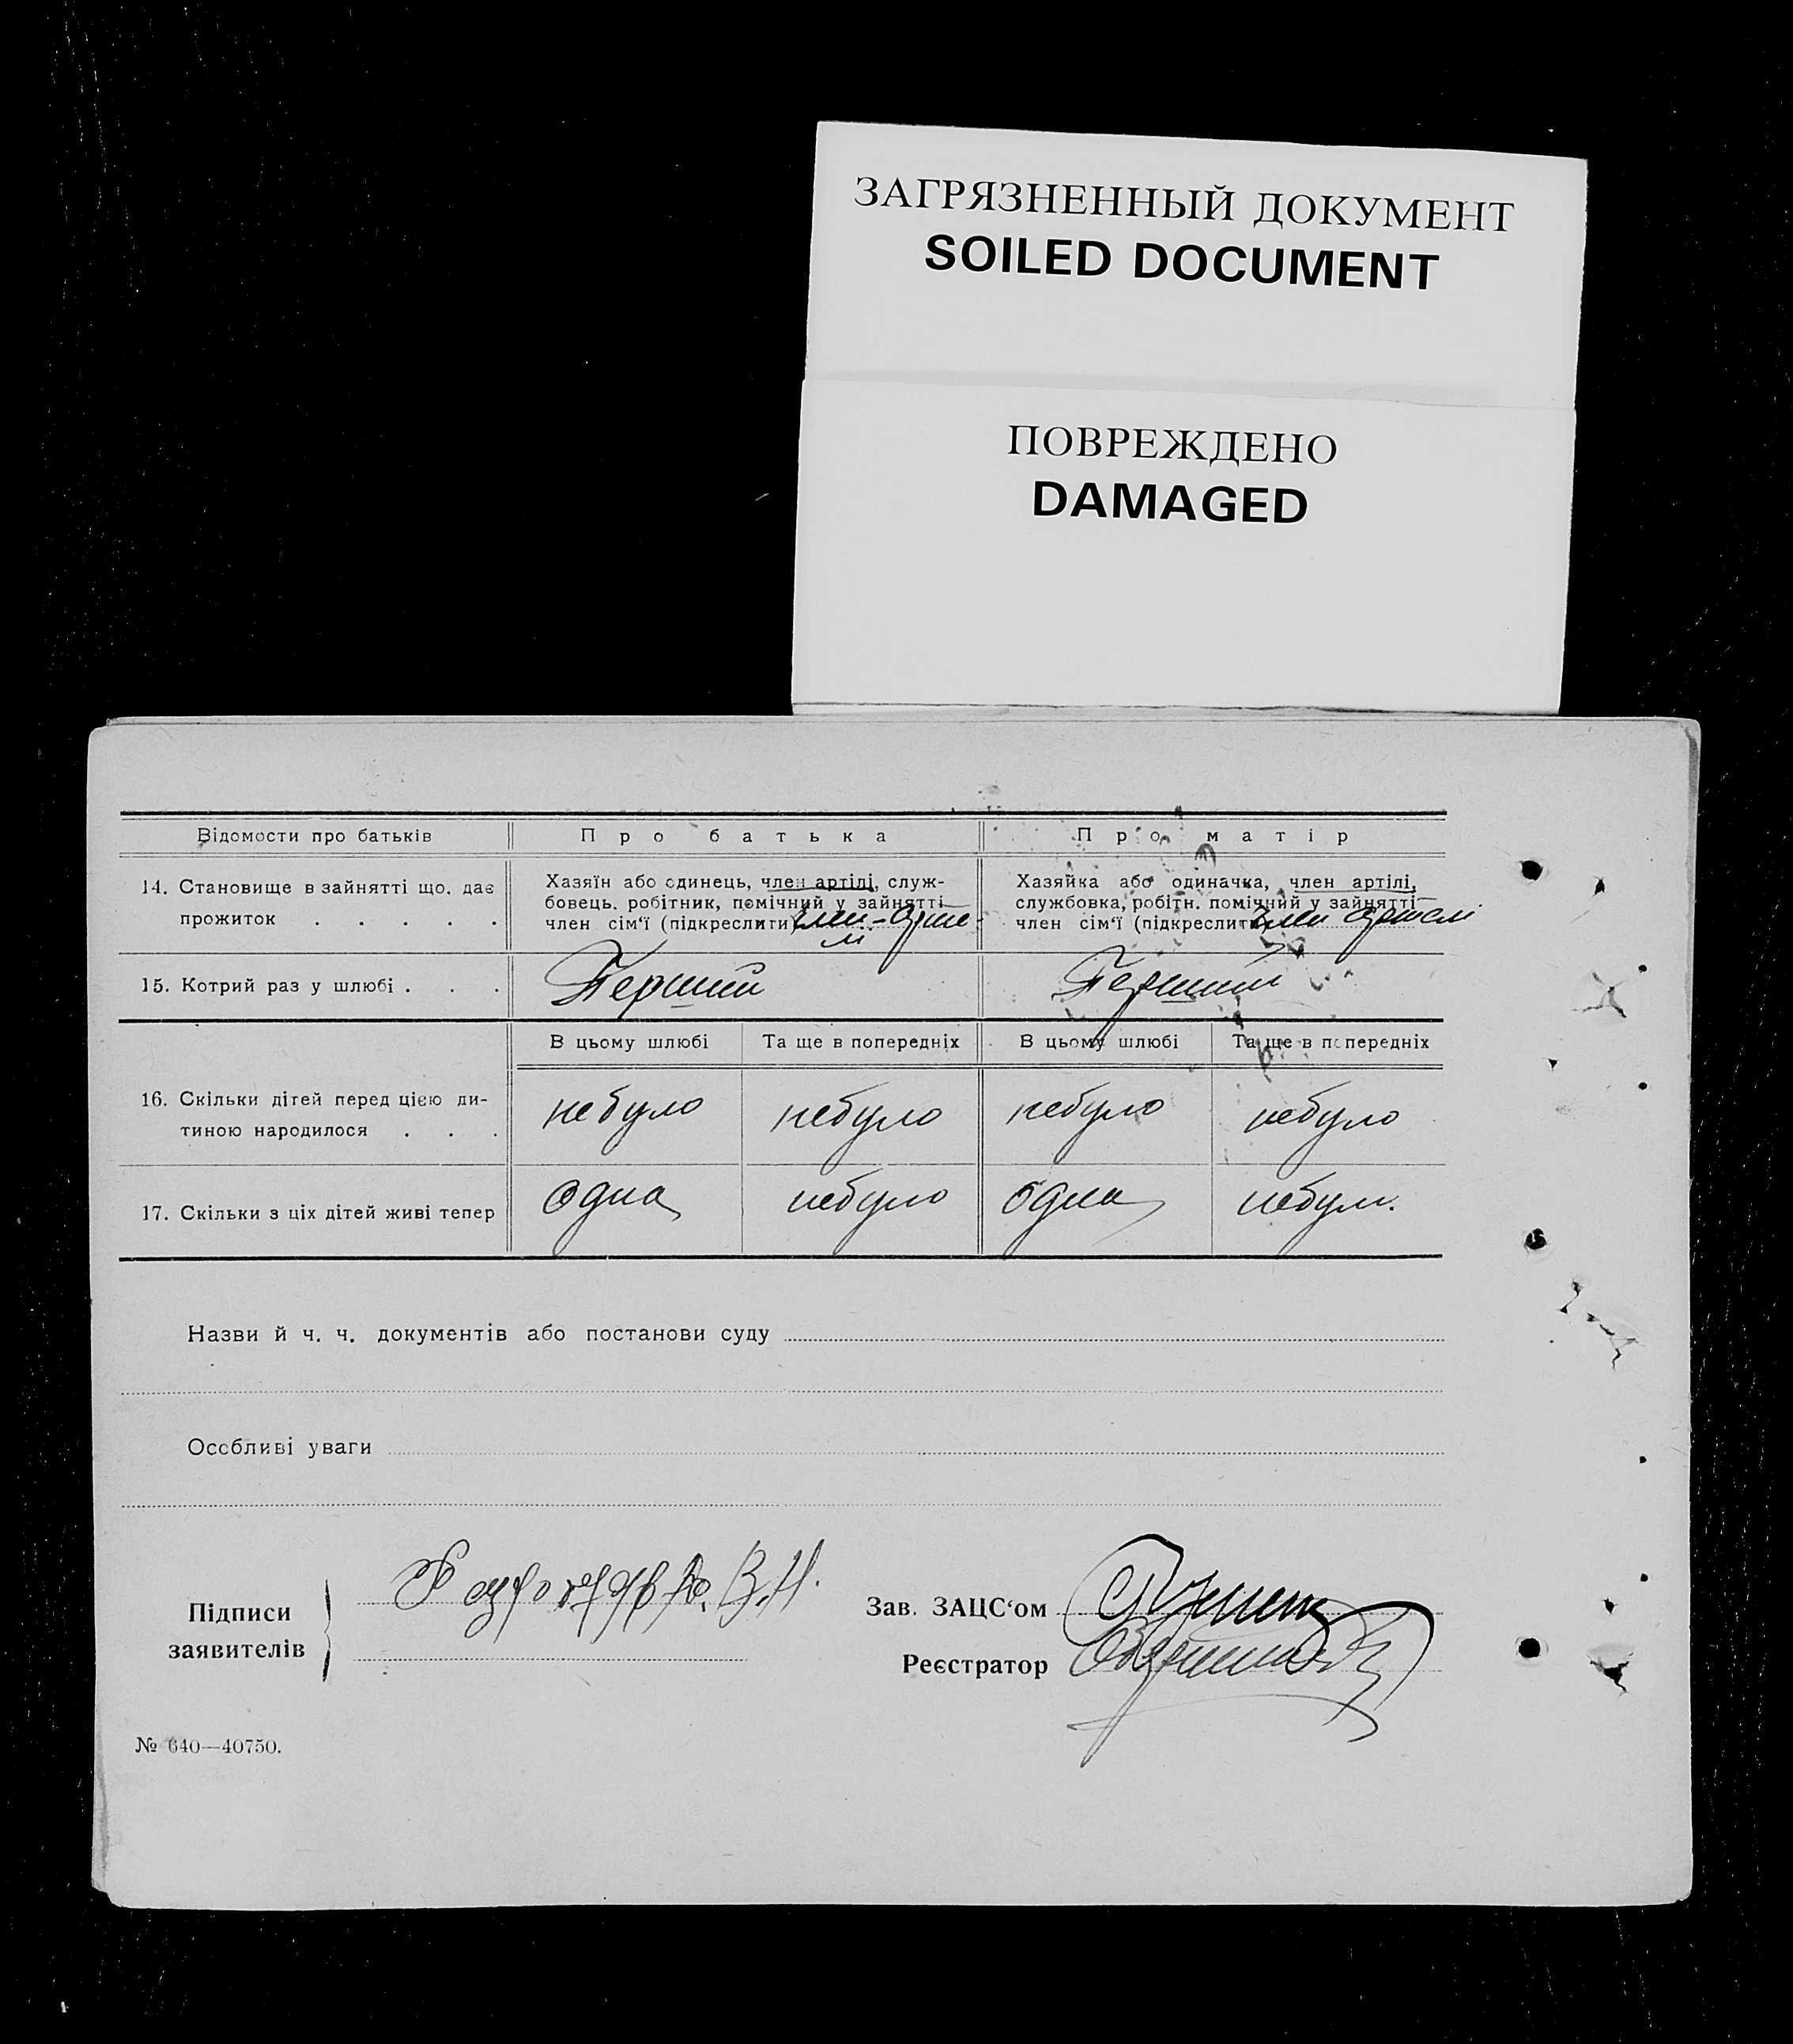 ЗАГРЯЗНЕННЫЙ ДОКУМЕНТ
SOILED DOCUMENT
ПОВРЕЖДЕНО
DAMAGED
Відомости про батьків Про батька Про матір
14. Становище в зайнятті що дає
прожиток . . . . .
Хазяїн або одинець, член артілі, служ-
бовець. робітник, помічний у зайнятті
член сім'ї (підкреслити) член-арте-
лі
Хазяйка або одиначка, член артілі,
службовка, робітн. помічний у зайнятті
член сім'ї (підкреслити) член артелі
15. Котрий раз у шлюбі . . . Перший Перший
В цьому шлюбі Та ще в попередніх В цьому шлюбі Та ще в попередніх
16. Скільки дітей перед цією ди-
тиною народилося . . .
небуло небуло небуло небуло
17. Скільки з ціх дітей живі тепер одна небуло одна небул.
Назви й ч. ч. документів або постанови суду
Особливі уваги
Підписи
заявителів
В.Н.
Зав. ЗАЦС'ом
Реєстратор
№ 640—40750.